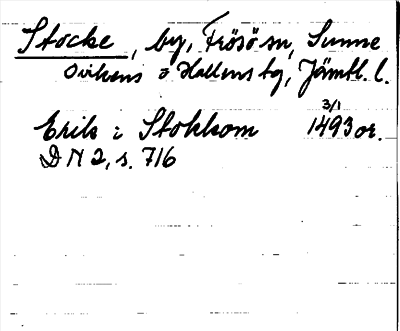 Stocke, by, Frösö sn, Sunne
Ovikens o Hallens tg, Jämtl. l.
Erik i Stokkom 3/1 1493 or.
DN 2, s. 716